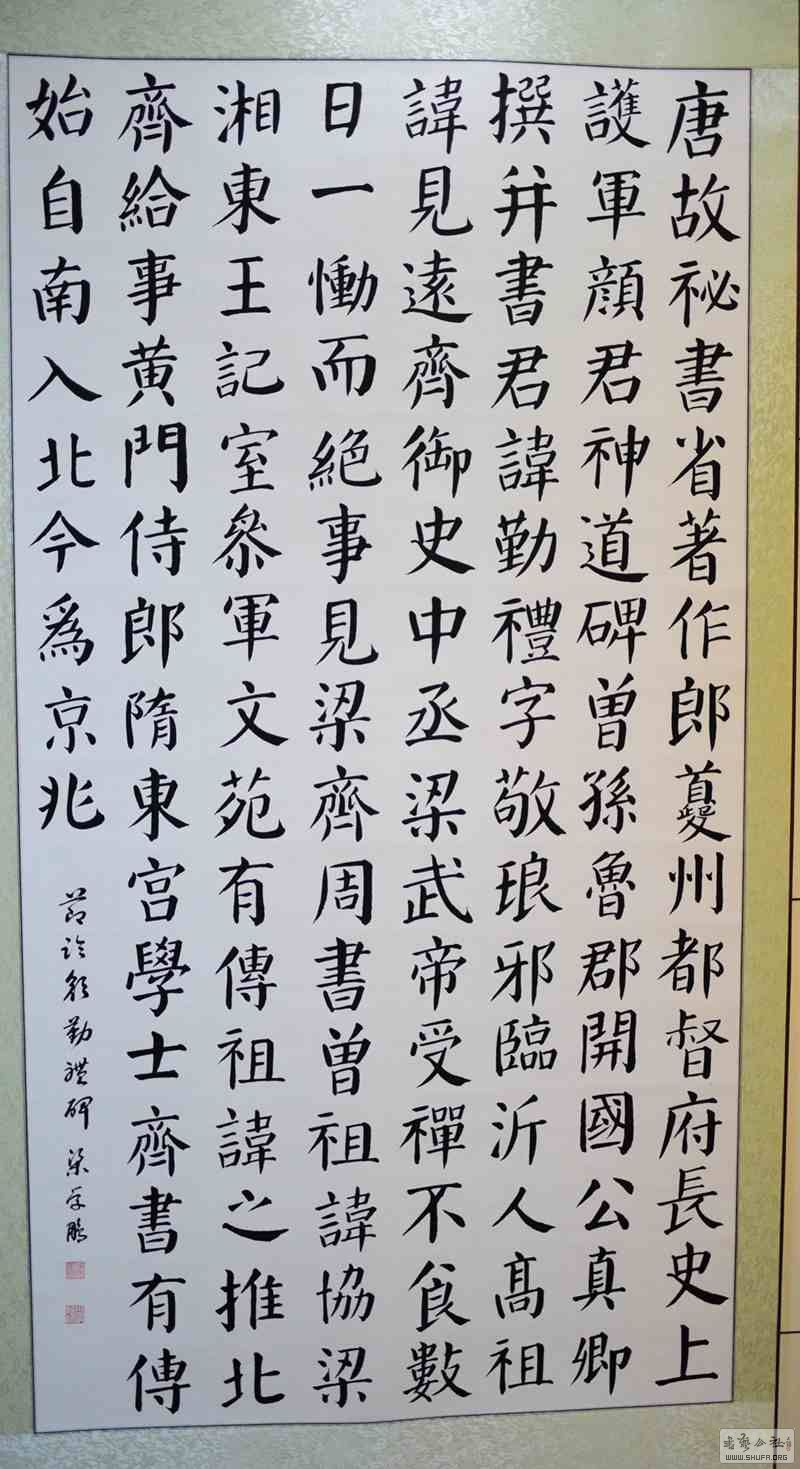 唐故祕書省著作郎夔州都督府長史上
護軍顏君神道碑曾孫魯郡開國公真卿
撰并書君諱勤禮字敬琅邪臨沂人高祖
諱見遠齊御史中丞梁武帝受禪不食數
日一慟而絕事見梁齊周書曾祖諱協梁
湘東王記室參軍文苑有傳祖諱之推北
齊給事黃門侍郎隋東宮學士齊書有傳
始自南入北今為京兆
節臨顏勤禮碑 梁學鵬
書藝公社
WWW.SHUFA.ORG